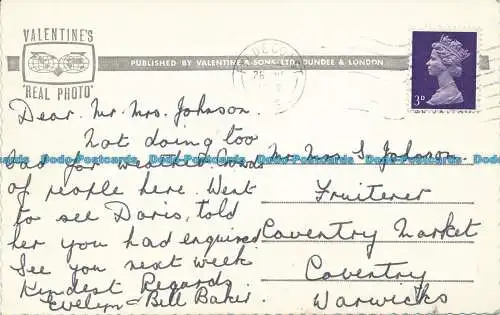 VALENTINE'S
"REAL PHOTO"
PUBLISHED BY VALENTINE & SONS, LTD., DUNDEE & LONDON
3D
Dear Mr. Mrs. Johnson.
Not doing too
bad for weather
of people here. Went
to see Doris, told
her you had enquired
See you next week
Kindest Regards
Evelyn & Bill Baker.
Mr Mrs S Johnson
Fruiterer
Coventry Market
Coventry
Warwicks
Dodo-Postcards Dodo-Postcards Dodo-Postcards Dodo-Postcards